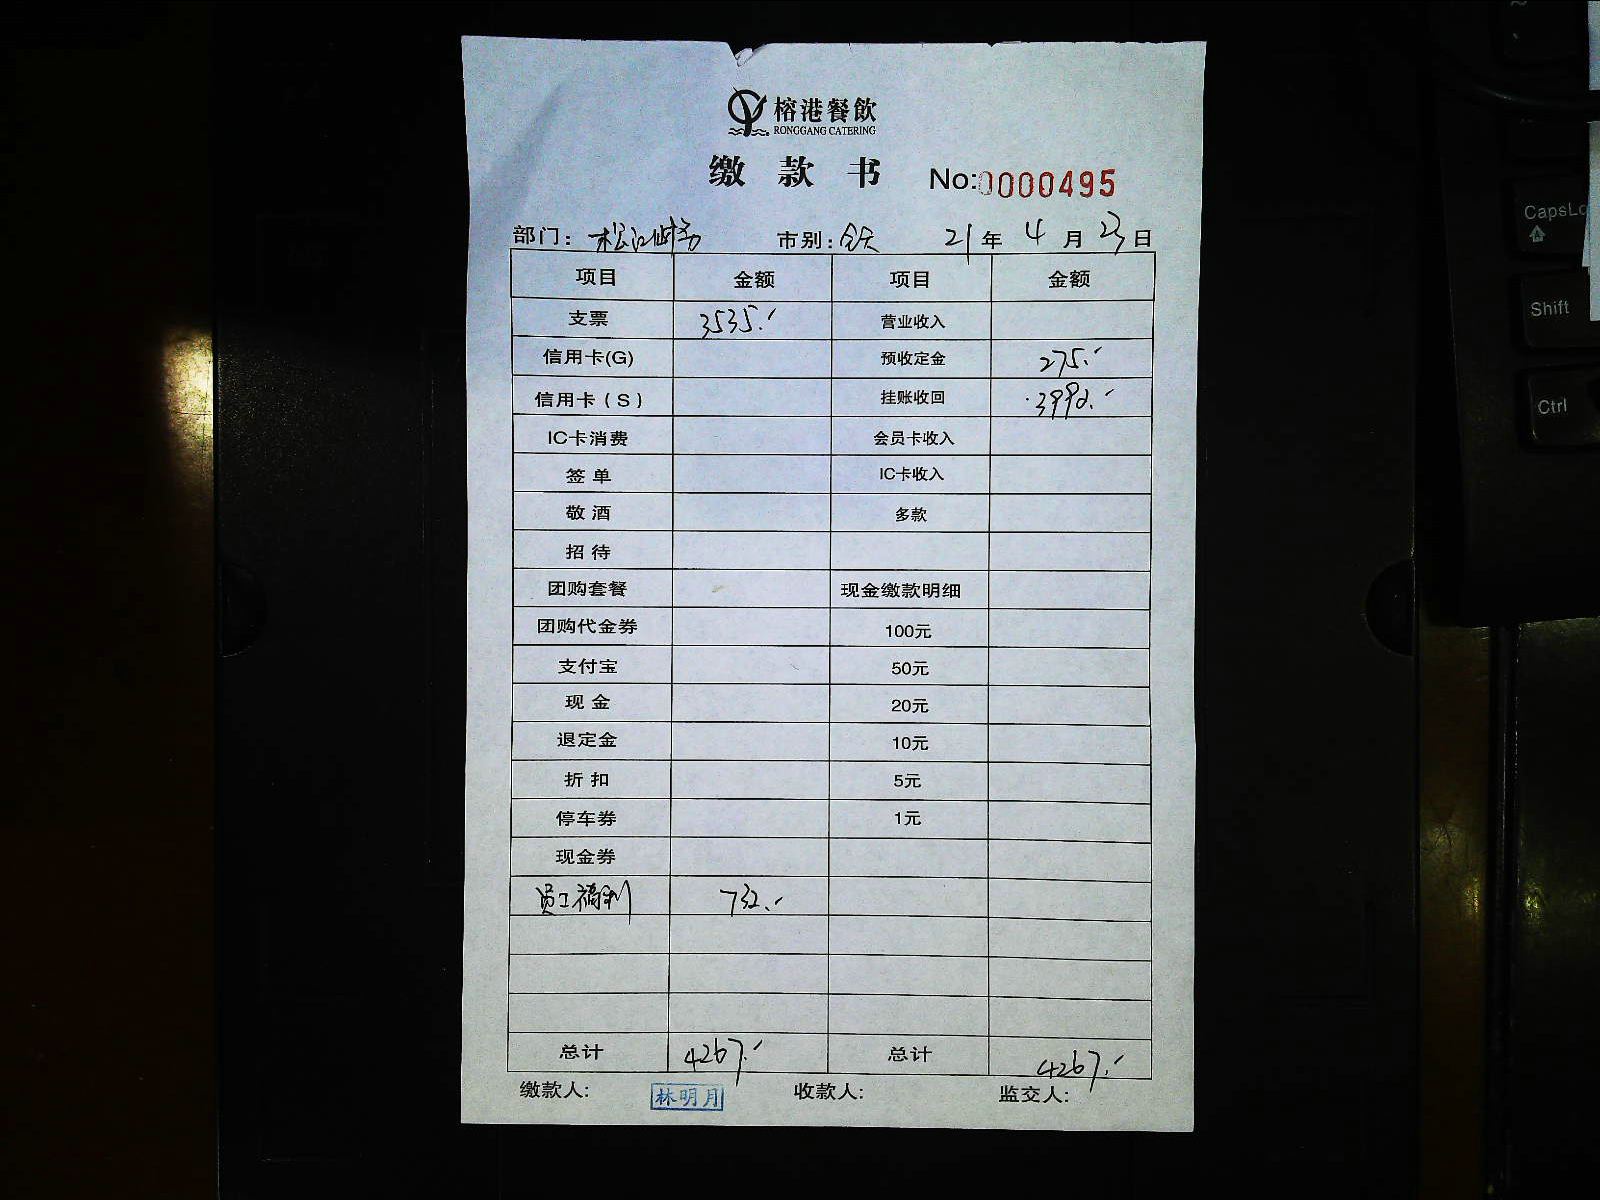 榕港餐飲
RONGGANG CATERING
缴款书 No:0000495
部门: 松江 市别: 全天 21年4月23日
项目 金额 项目 金额
支票 3535.- 营业收入
信用卡(G) 预收定金 275.-
信用卡(S) 挂账收回 3992.-
IC卡消费 会员卡收入
签单 IC卡收入
敬酒 多款
招待
团购套餐 现金缴款明细
团购代金券 100元
支付宝 50元
现金 20元
退定金 10元
折扣 5元
停车券 1元
现金券
员工福利 732.-
总计 4267.- 总计 4267.-
缴款人: 林明月 收款人: 监交人:
CapsLo
Shift
Ctrl